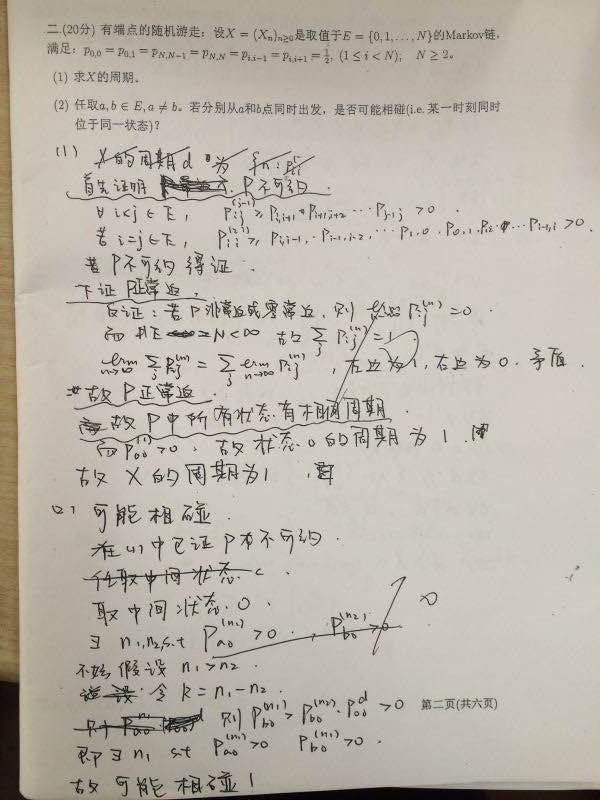 二.(20分) 有端点的随机游走：设X = (Xₙ)ₙ≥₀是取值于E = {0, 1, . . . , N}的Markov链,
满足: p₀,₀ = p₀,₁ = p_{N,N−1} = p_{N,N} = p_{i,i−1} = p_{i,i+1} = 1/2, (1 ≤ i < N); N ≥ 2。
(1) 求X的周期。
(2) 任取a, b ∈ E, a ≠ b。若分别从a和b点同时出发，是否可能相碰(i.e. 某一时刻同时
位于同一状态)?
(1) X的周期d 为
首先证明 P不可约.
∀ i<j ∈ E, P_{ij}^{(j-i)} ≥ P_{i,i+1}·P_{i+1,i+2} ⋯ P_{j-1,j} > 0.
若 i=j ∈ E, P_{ii}^{(2i)} ≥ P_{i,i-1}·P_{i-1,i-2} ⋯ P_{1,0}·P_{0,1} ⋯ P_{i-1,i} > 0.
故P不可约得证.
下证P正常返.
反证：若P非常返或零常返, 则 P_{ij}^{(n)} = 0.
而 #E = N < ∞ 故 Σ_j P_{ij}^{(n)} = 1.
lim_{n→∞} Σ_j P_{ij}^{(n)} = Σ_j lim_{n→∞} P_{ij}^{(n)}, 左边为1, 右边为0. 矛盾.
故P正常返.
故P中所有状态有相同周期.
而 P_{00}^{(1)} > 0, 故状态0的周期为1.
故X的周期为1.
(2) 可能相碰.
在(1)中已证P不可约.
任取中间状态 c
取中间状态0.
∃ n₁,n₂, s.t P_{a0}^{(n₁)} > 0, P_{b0}^{(n₂)} > 0
不妨假设 n₁>n₂.
令 k = n₁-n₂.
则 P_{b0}^{(n₁)} ≥ P_{b0}^{(n₂)}·P_{00}^{d} > 0
第二页(共六页)
即∃ n₁ s.t P_{a0}^{(n₁)} > 0 P_{b0}^{(n₁)} > 0.
故可能相碰!